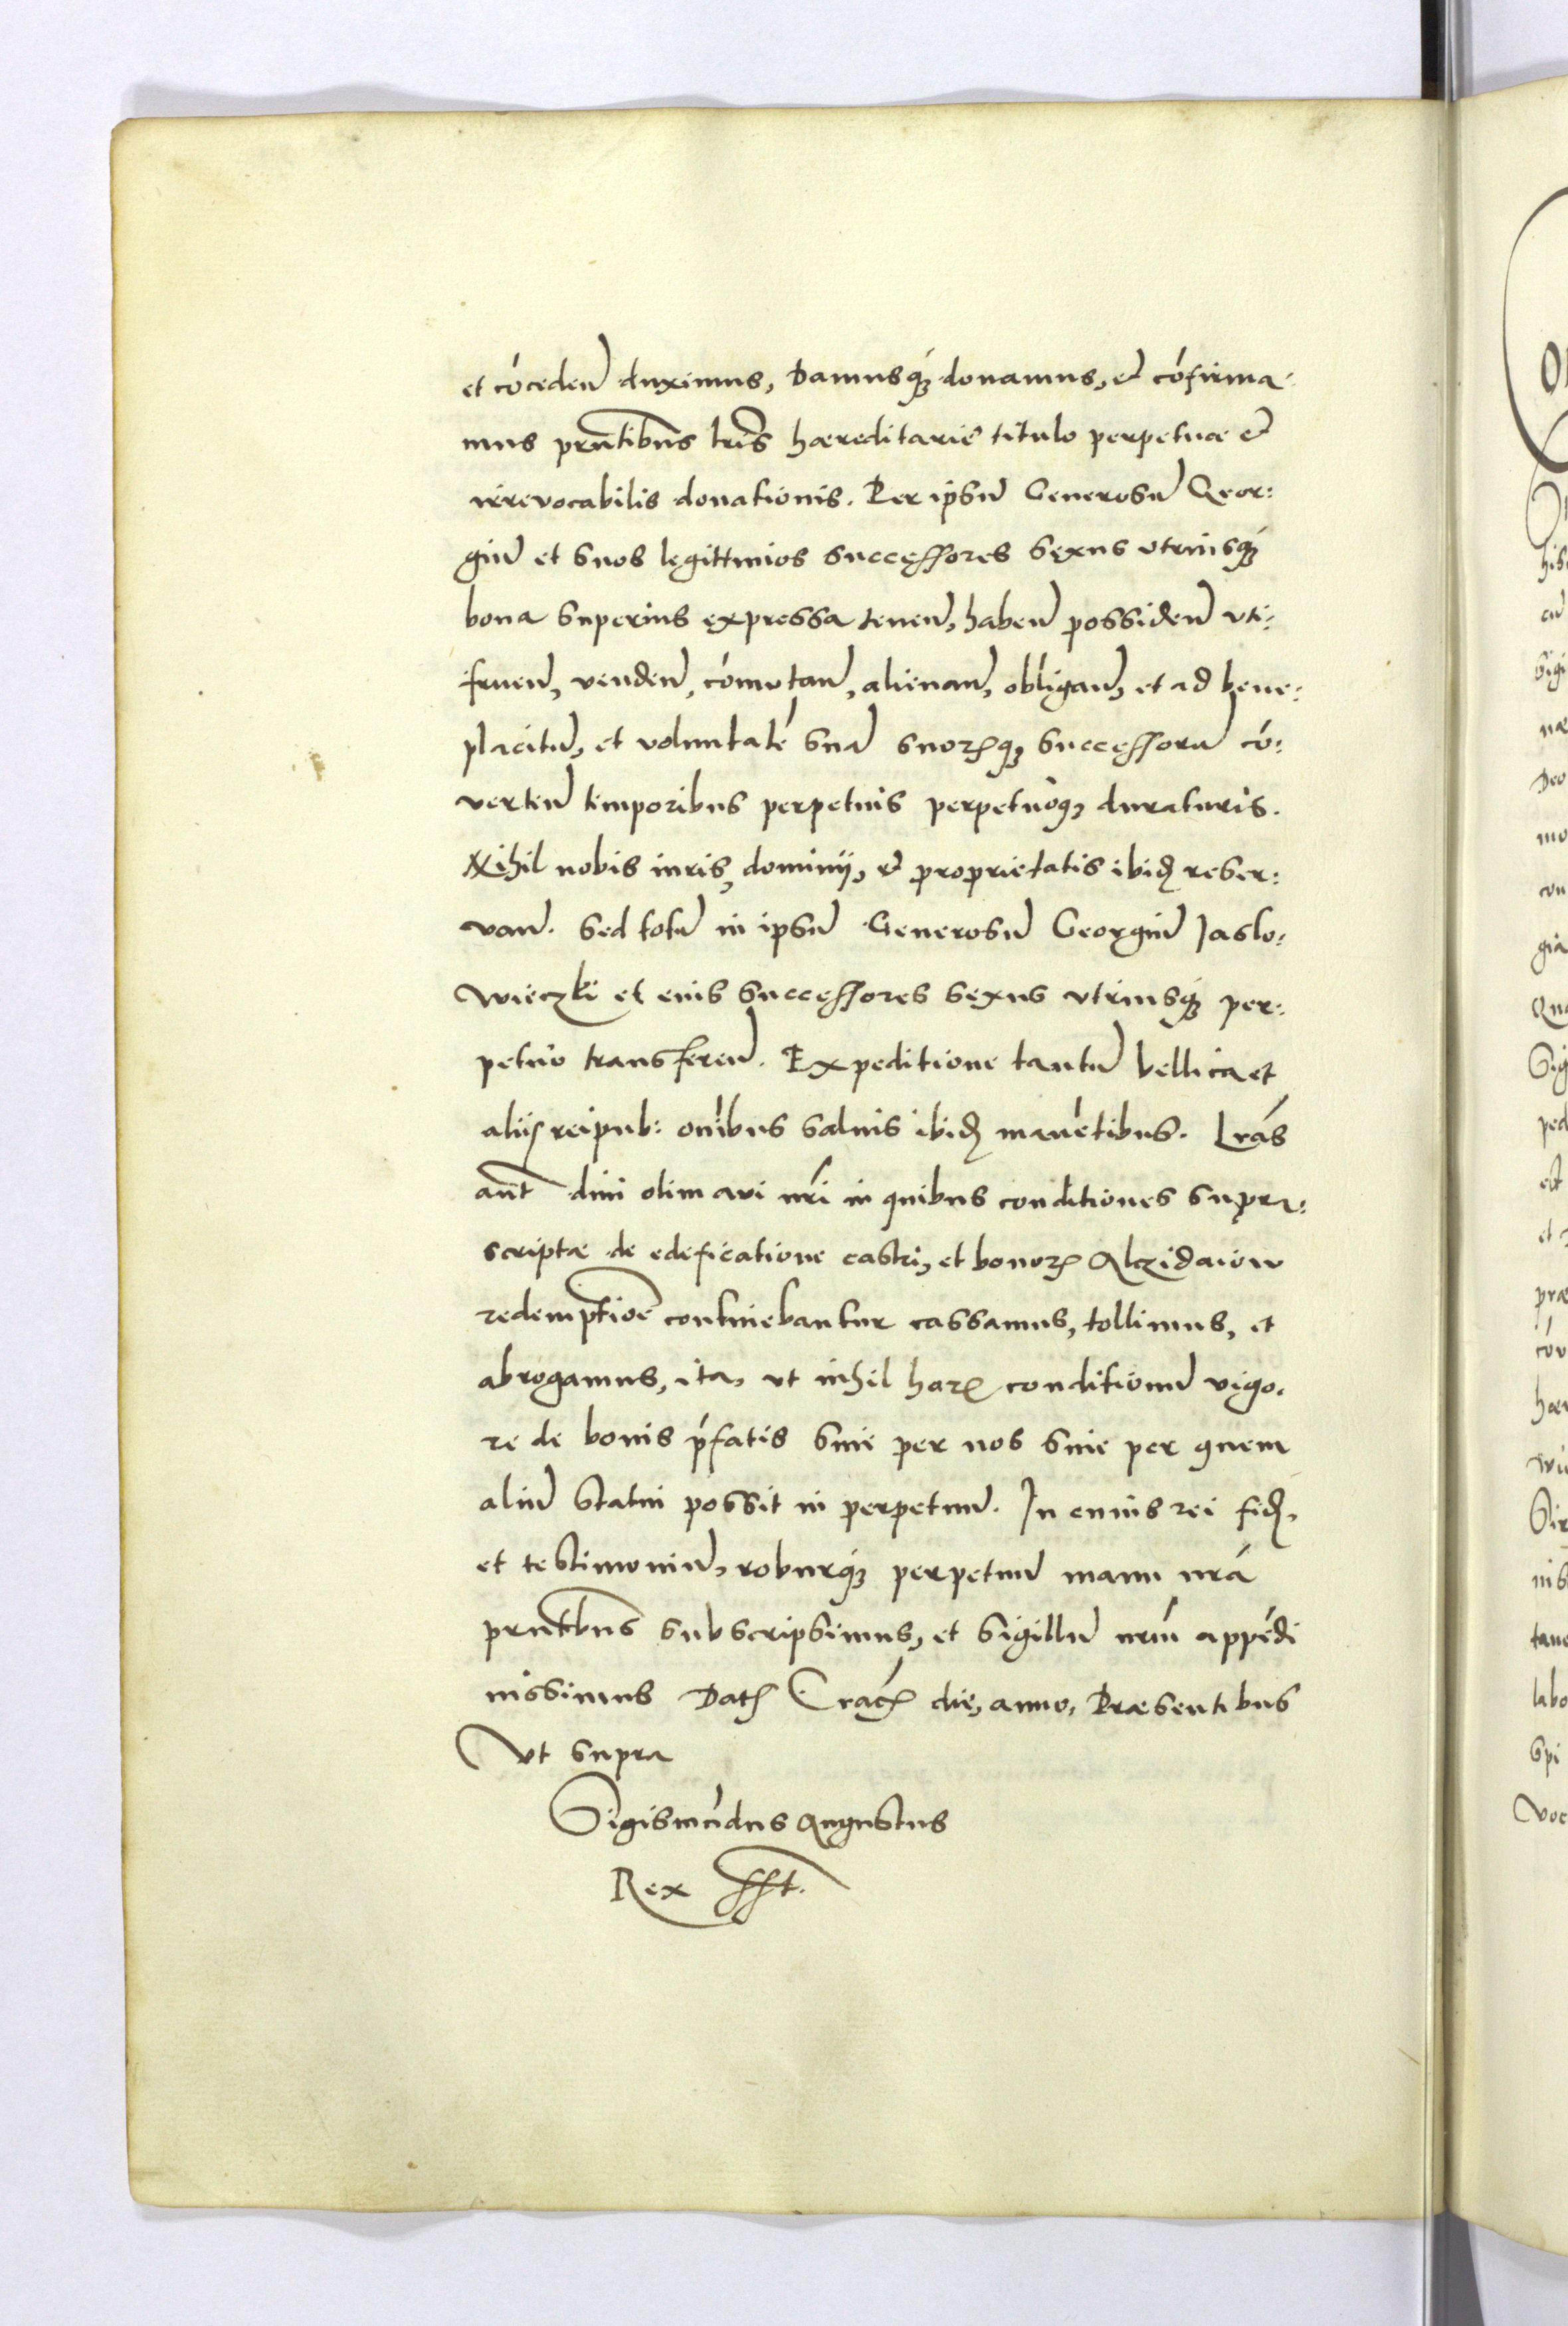 et cōcedeñ duximus, Damusq́ꝫ donamus, et cōfirma-
mus pr̃ntibus lr̃is hæreditarie titulo perpetuæ et
irrevocabilis donationis. Per ip̄sũ Generosũ Geor:
giũ et suos legittimos successores sexus utriusq́ꝫ
bona superius expressa teneñ, habeñ possideñ uti:
frueñ, vendeñ, cōmutañ, alienañ, obligañ, et ad bene:
placitũ, et voluntatē suã suorꝝqꝫ successorũ cō:
verteñ temporibus perpetuis perpetuoqꝫ duraturis.
Nihil nobis iuris, dominij, et proprietatis ibidꝫ reser:
vañ. Sed totũ in ip̄sũ Generosũ Georgiũ Jaslo:
wieczki et eius successores sexus utriusq́ꝫ per:
petuo transfereñ. Expeditione tantũ bellica et
aliis reipub: on̄ibus salvis ibidꝫ manētibus. Lr̃as
aũt divi olim avi nr̃i in quibus conditiones supra:
scriptæ de edeficatione castri, et bonorꝝ Alczidaiow
redemptiōe continebantur cassamus, tollimus, et
abrogamus, ita, ut nihil harꝝ conditionũ vigo-
re de bonis p̄fatis sive per nos sive per quem
aliũ statui possit in perpetuũ. In cuius rei fidꝫ,
et testimoniũ, roburq́ꝫ perpetuũ manu nr̃a
pr̃ntibus subscripsimus, et sigillũ nr̃m appēdi
iussimus Datꝫ Cracꝫ die, anno, Præsentibus
Ut supra
Sigismūdus Augustus
Rex sst.